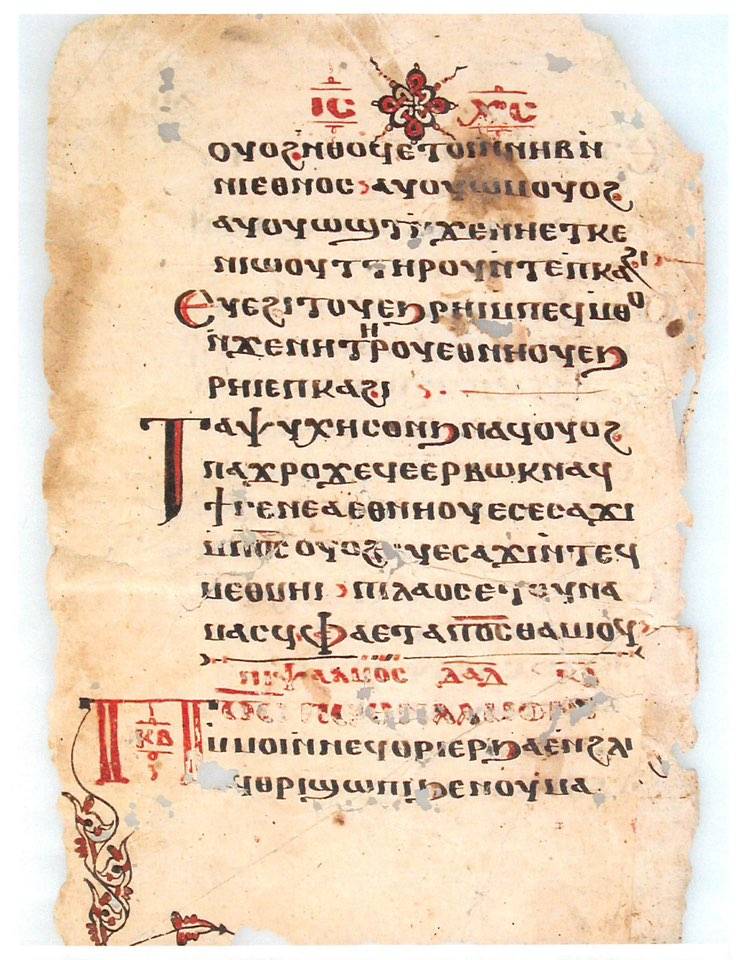 ⲓⲥ ⲭⲥ
ⲟⲩⲟϩⲛⲑⲟϥⲉⲧⲟⲓⲛⲛⲏⲃⲛ
ⲛⲓⲉⲑⲛⲟⲥ ⲁⲩⲟⲩⲱⲙⲟⲩⲟϩ
ⲁⲩⲟⲩⲱϣⲧⲛϫⲉⲛⲏⲉⲧⲕⲉ
ⲛⲓⲱⲟⲩⲧⲧⲏⲣⲟⲩⲛⲧⲉⲡⲕⲁϩⲓ
ⲉⲩⲉϩⲓⲧⲟⲩⲉϧⲣⲏⲓⲙⲡⲉϥⲙⲑⲟ
ⲛϫⲉⲛⲏⲧⲏⲣⲟⲩⲉⲑⲛⲏⲟⲩⲉϧ
ⲣⲏⲓⲉⲡⲕⲁϩⲓ
ⲧⲁⲯⲩⲭⲏⲥⲟⲛϧⲛⲁϥⲟⲩⲟϩ
ⲡⲁϫⲣⲟϫⲉϥⲉⲉⲣⲃⲱⲕⲛⲁϥ
ϯⲅⲉⲛⲉⲁⲉⲑⲛⲏⲟⲩⲉⲥⲉⲥⲁϫⲓ
ⲙⲡⲟⲥ ⲟⲩⲟϩ ⲉⲩⲉⲥⲁϫⲓⲛⲧⲉϥ
ⲙⲉⲑⲙⲏⲓ ⲡⲓⲗⲁⲟⲥⲉⲧⲟⲩⲛⲁ
ⲙⲁⲥϥ ⲫⲁⲉⲧⲁⲡⲟⲥⲑⲁⲙⲓⲟϥ
ⲡⲓⲯⲁⲗⲙⲟⲥ ⲇⲁⲇ ⲕⲃ
ⲡ ⲕⲃ
ⲙⲙⲟⲓⲛⲛⲉϥⲑⲣⲓⲉⲣϧⲁⲉⲛϩⲗⲓ
ⲁϥⲑⲣⲓϣⲱⲡⲓϧⲉⲛⲟⲩⲙⲁ